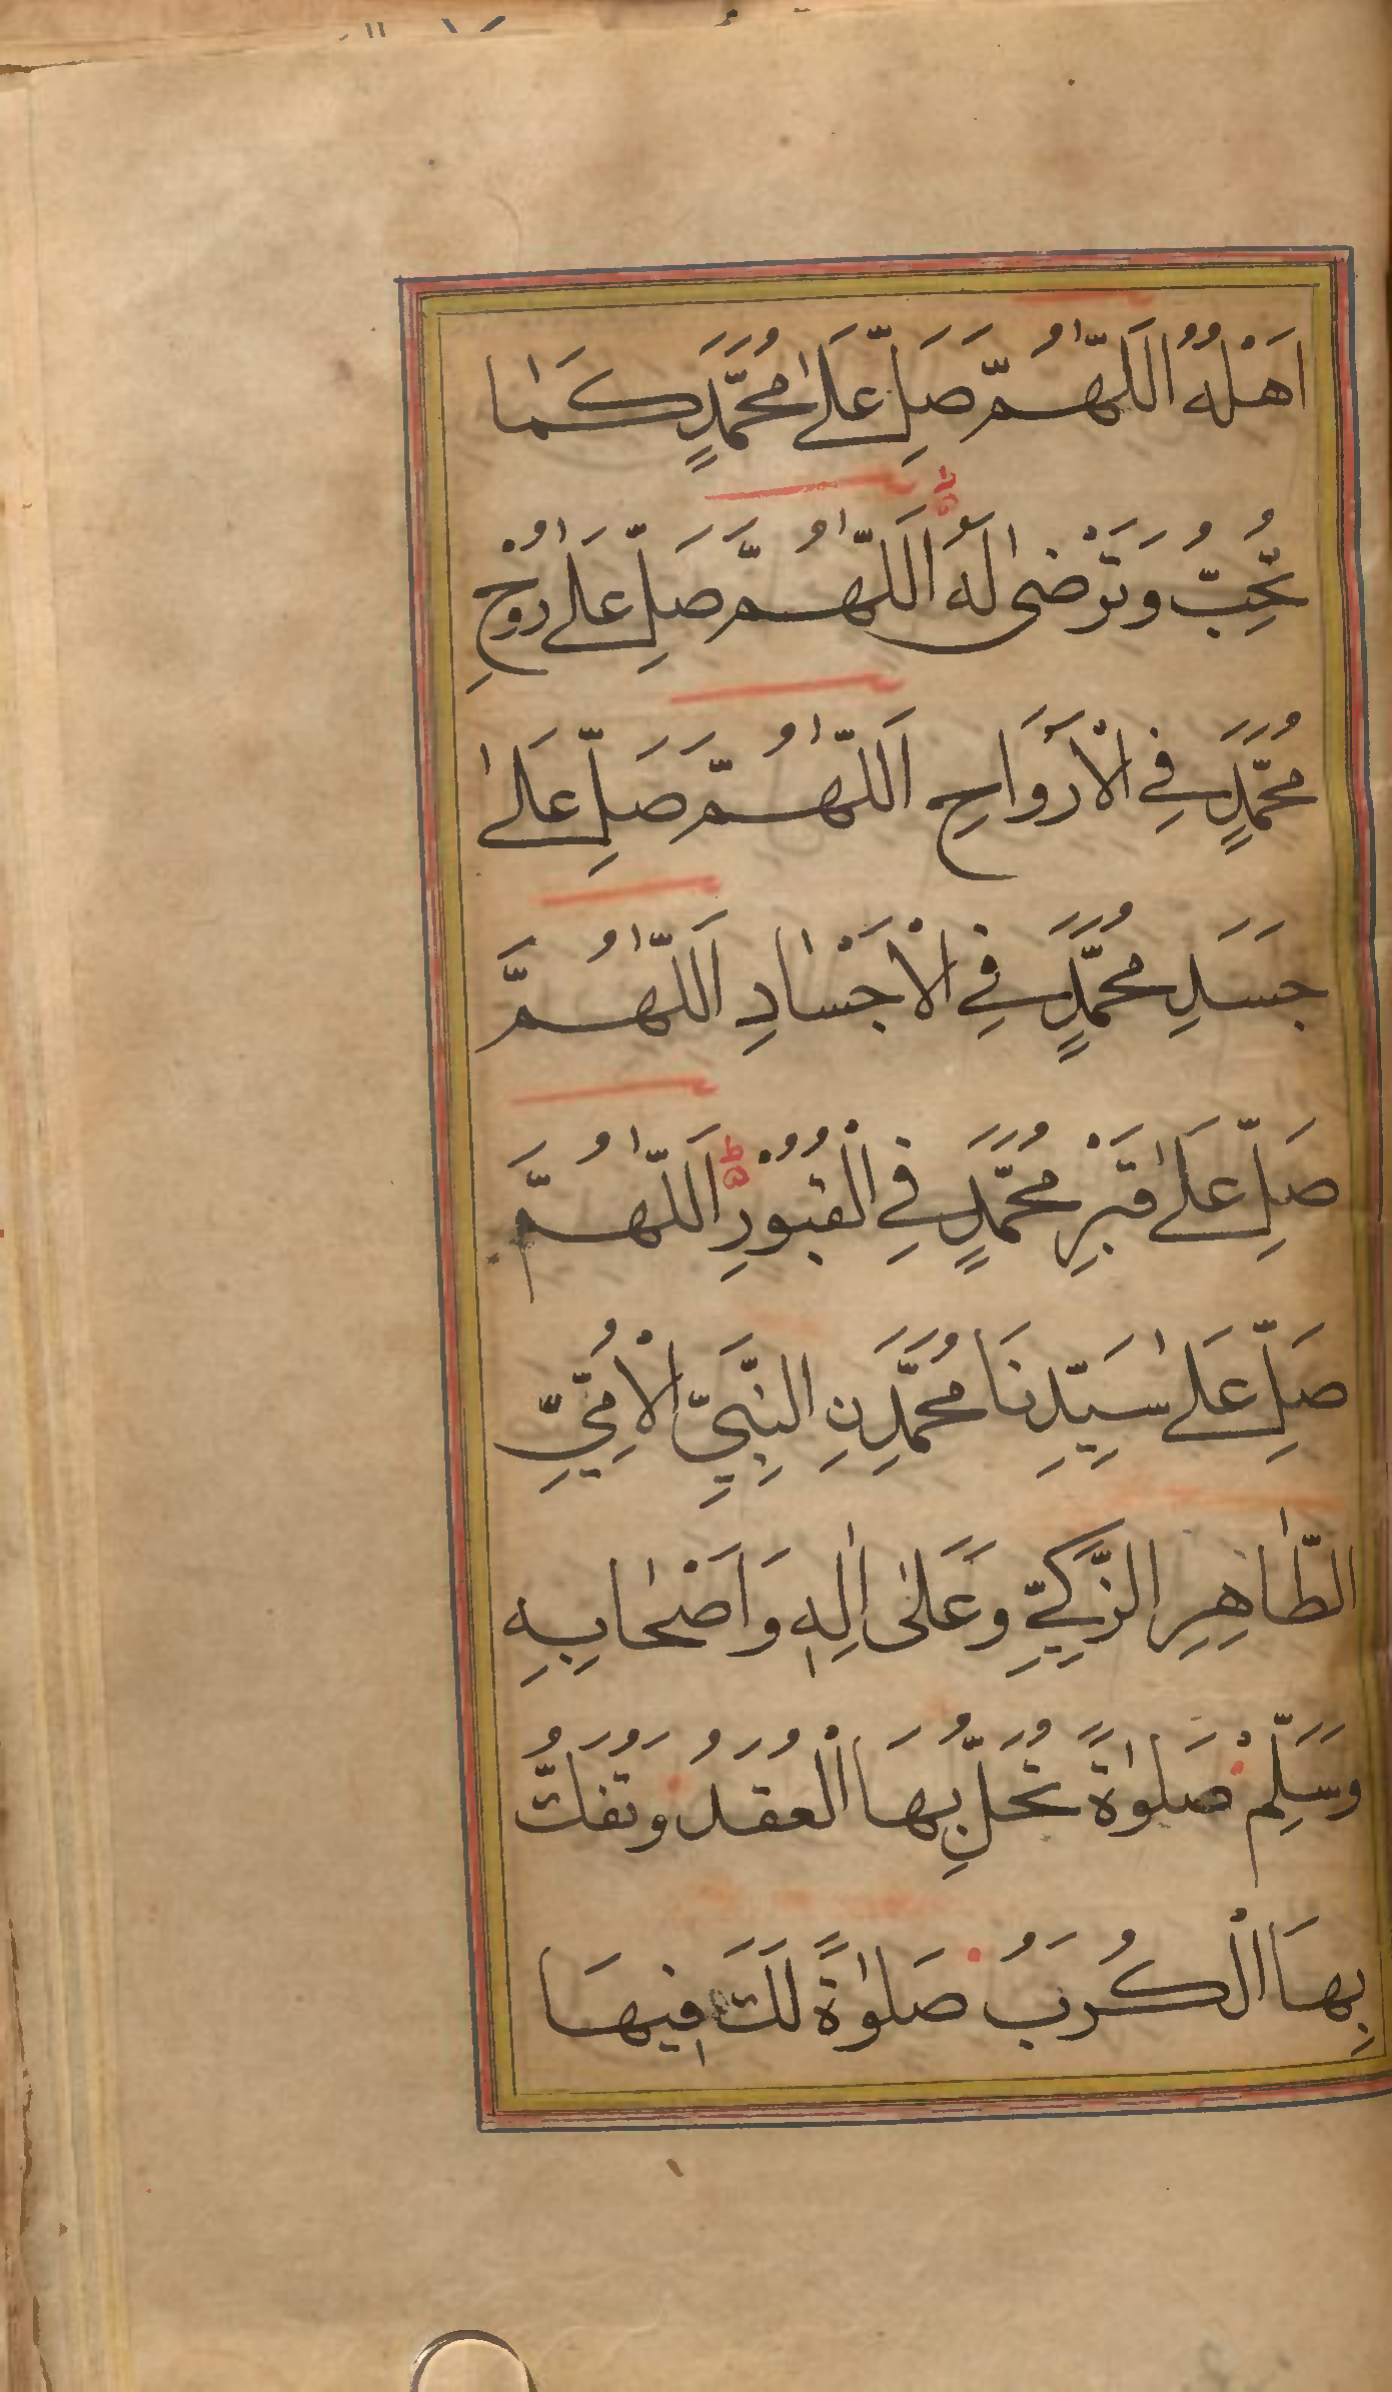 اَهْلُهُ اَللّٰهُمَّ صَلِّ عَلٰى مُحَمَّدٍ كَمٰا
تُحِبُّ وَتَرْضٰى لَهُ اَللّٰهُمَّ صَلِّ عَلٰى رُوْحِ
مُحَمَّدٍ فِي الْاَرْوَاحِ اَللّٰهُمَّ صَلِّ عَلٰى
جَسَدِ مُحَمَّدٍ فِي الْاَجْسٰادِ اَللّٰهُمَّ
صَلِّ عَلٰى قَبْرِ مُحَمَّدٍ فِي الْقُبُوْرِ ط اَللّٰهُمَّ
صَلِّ عَلٰى سَيِّدِنَا مُحَمَّدَنِ النَّبِيِّ الْاُمِّيِّ
الطّٰاهِرِ الزَّكِيِّ وَعَلٰى اٰلِهٖ وَاَصْحٰابِهِ
وَسَلِّمْ صَلٰوةً تُحَلُّ بِهَا الْعُقَدُ وَتُفَكُّ
بِهَا الْكُرَبُ صَلٰوةً لَكَ فِيهَا